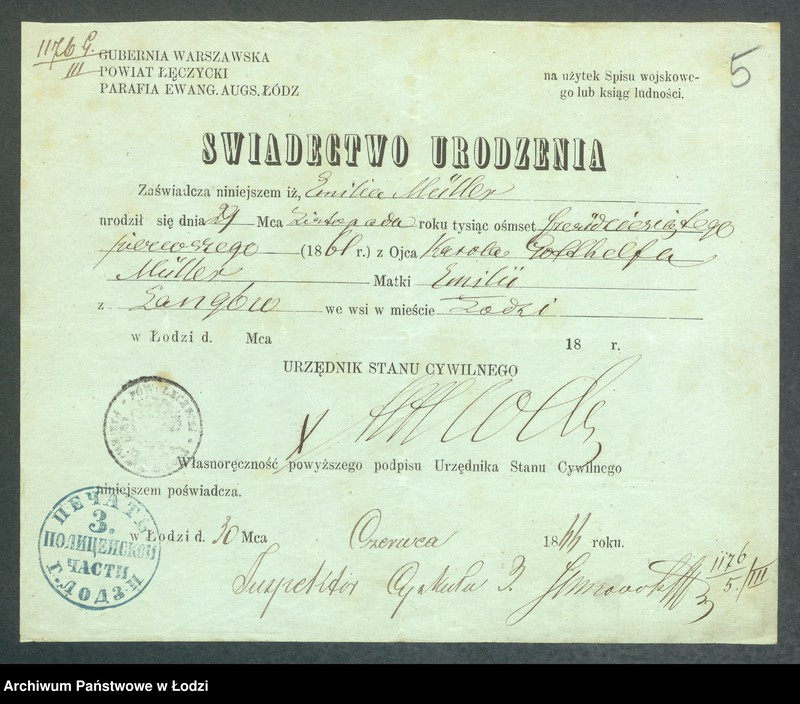 1176 G.
III
GUBERNIA WARSZAWSKA
POWIAT ŁĘCZYCKI
PARAFIA EWANG. AUGS. ŁÓDZ
na użytek Spisu wojskowe-
go lub ksiąg ludności.
5
SWIADECTWO URODZENIA
Zaświadcza niniejszem iż, Emilia Müller
urodził się dnia 29 Mca Listopada roku tysiąc ośmset sześćdziesiątego
pierwszego (1861 r.) z Ojca Karola Gotthelfa
Müller Matki Emilii
z Langów we wsi w mieście Łodzi
w Łodzi d. Mca 18 r.
URZĘDNIK STANU CYWILNEGO
Własnoręczność powyższego podpisu Urzędnika Stanu Cywilnego
niniejszem poświadcza.
w Łodzi d. 30 Mca Czerwca 18 roku.
Inspektor Cyrkułu 3.
1176
5./III
ПЕЧАТЬ
3.
ПОЛИЦЕЙСКОЙ
ЧАСТИ
Г. ЛОДЗИ
Archiwum Państwowe w Łodzi